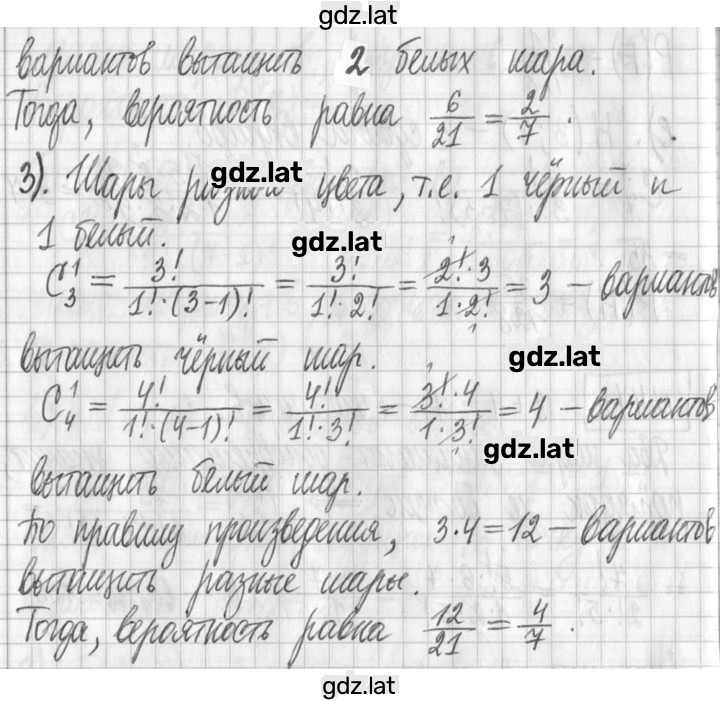 gdz.lat
вариантов вытащить 2 белых шара.
Тогда, вероятность равна 6/21 = 2/7.
gdz.lat
3). Шары разного цвета, т.е. 1 чёрный и
1 белый.
gdz.lat
C₃¹ = 3!/(1!·(3-1)!) = 3!/(1!·2!) = (2!·3)/(1·2!) = 3 – вариантов
вытащить чёрный шар.
gdz.lat
C₄¹ = 4!/(1!·(4-1)!) = 4!/(1!·3!) = (3!·4)/(1·3!) = 4 – вариантов
gdz.lat
вытащить белый шар.
по правилу произведения, 3·4=12 – вариантов
вытащить разные шары.
Тогда, вероятность равна 12/21 = 4/7.
gdz.lat